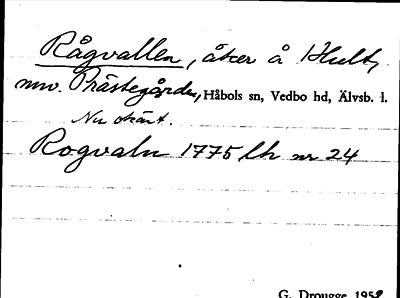 Rågvallen, åker å Hult,
nuv. Prästegården, Håbols sn, Vedbo hd, Älvsb. l.
Nu okänt.
Rogvaln 1775 lh nr 24
G. Drougge 1958